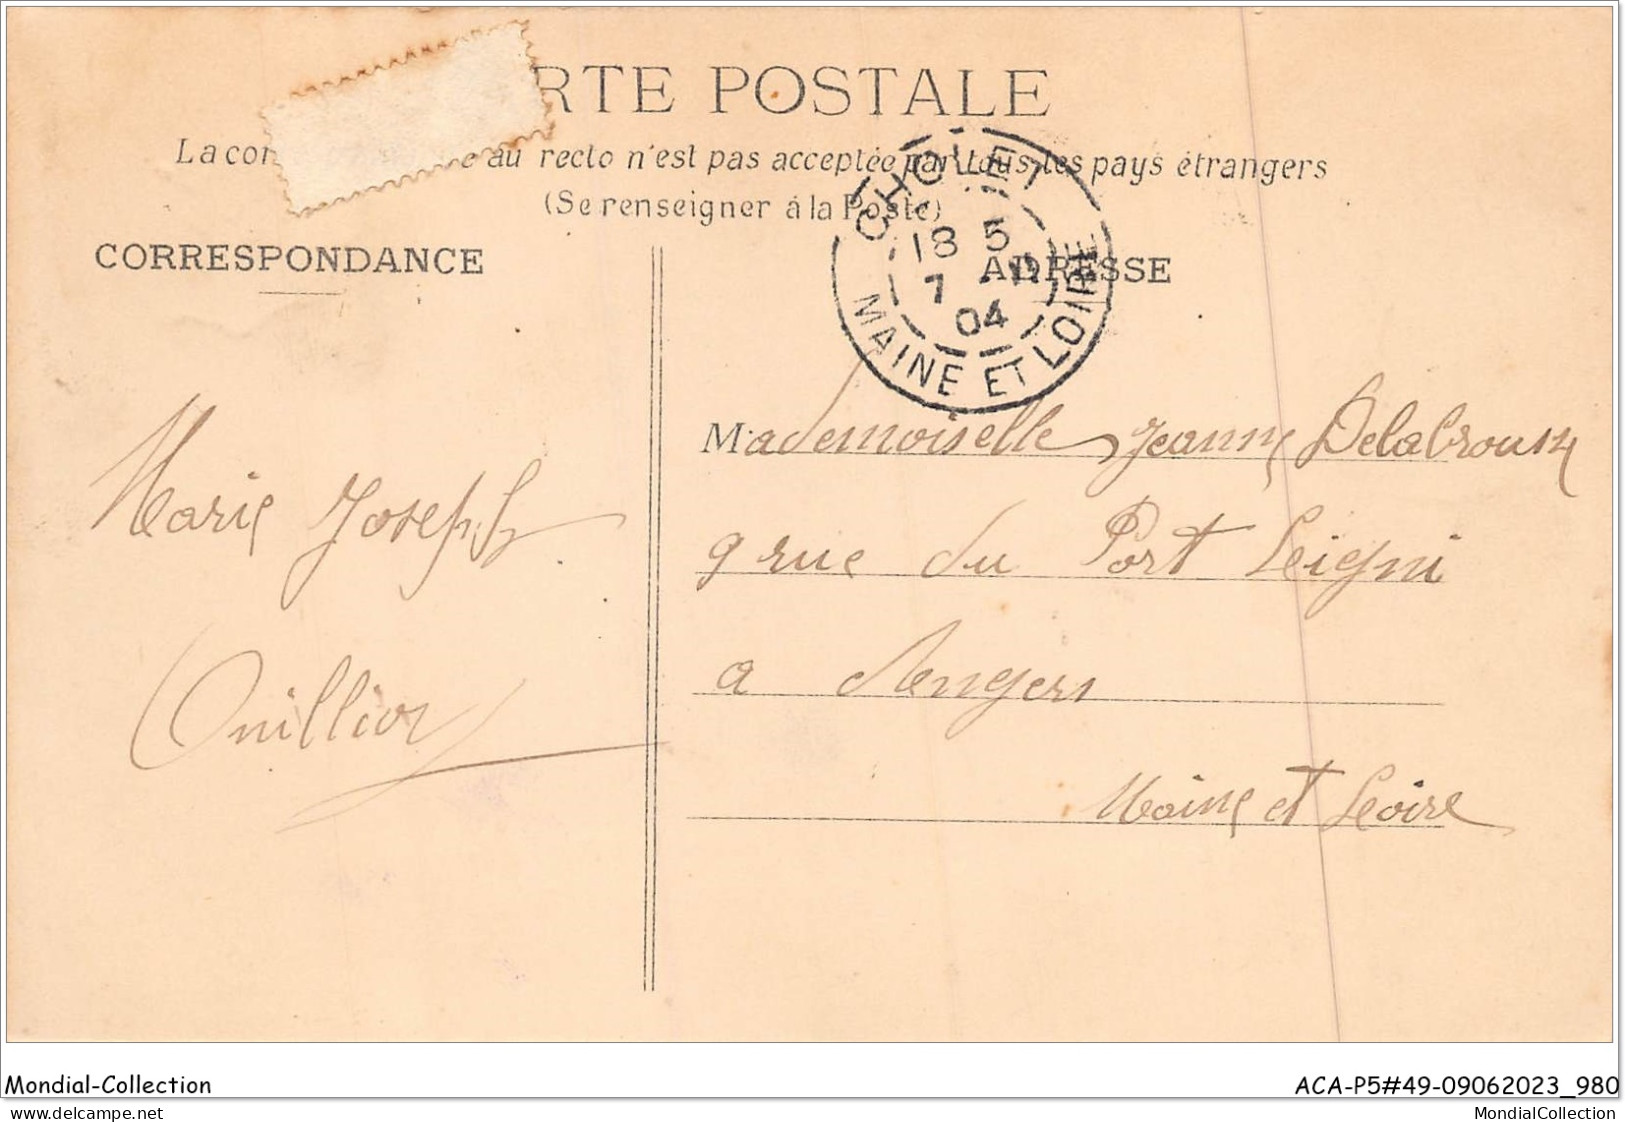 RTE POSTALE
La cor e au recto n'est pas acceptée par tous les pays étrangers
(Se renseigner à la Poste)
CORRESPONDANCE
ADRESSE
CHOLET
18 5
7 -11
04
MAINE ET LOIRE
Marie Joseph
Mademoiselle Jeanne Delabrousse
9 rue du Port Leigni
a Angers
Maine et Loire
Mondial-Collection
ACA-P5#49-09062023_980
MondialCollection